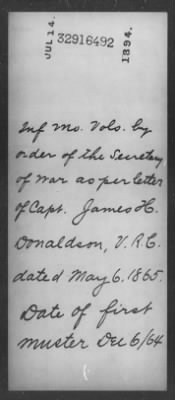 JUL 14.
32916492
1894.
Inf Mo. Vols. by
order of the Secretary
of War as per letter
of Capt. James H.
Donaldson, V.R.C.
dated May 6. 1865.
Date of first
muster Dec 6/64